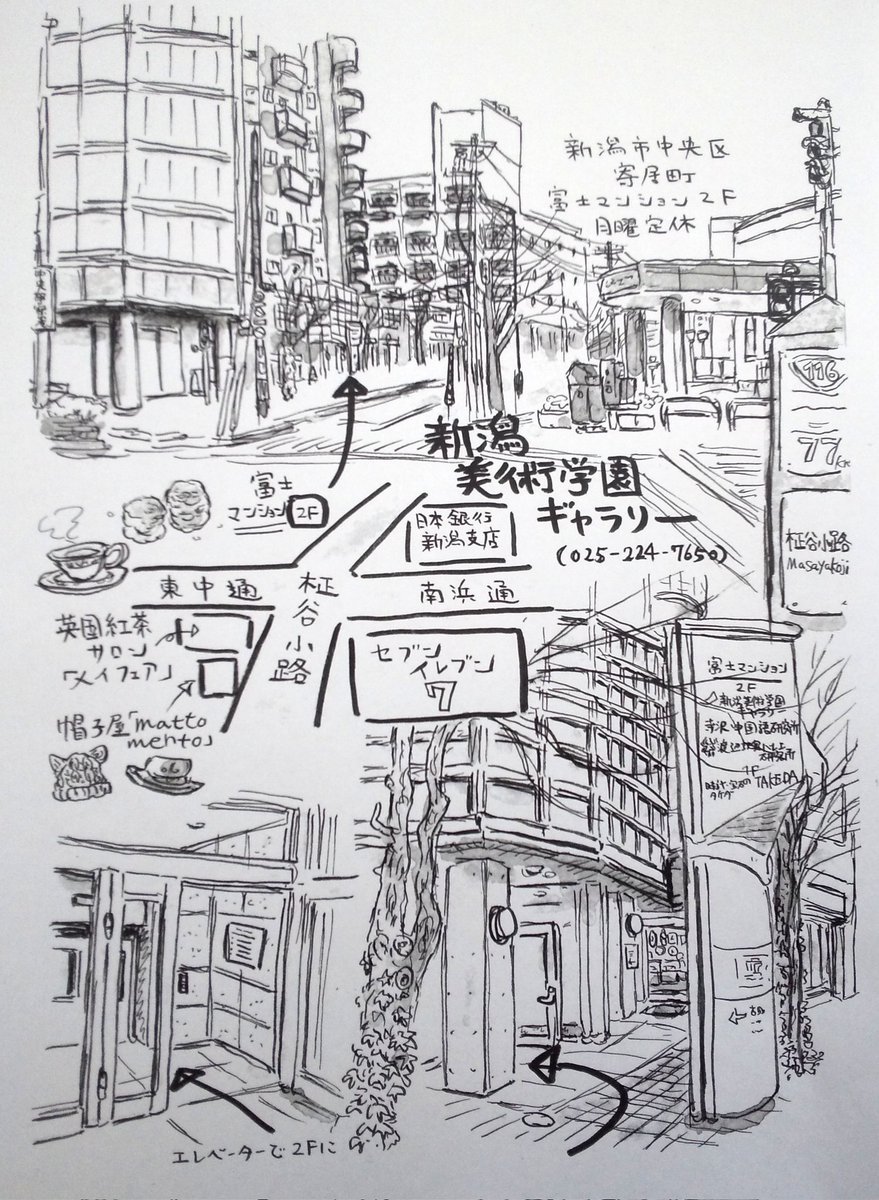 新潟市中央区
寄居町
富士マンション2F
月曜定休
116
77km
柾谷小路
Masayakoji
新潟
美術学園
ギャラリー
(025-224-7650)
富士
マンション 2F
日本銀行
新潟支店
東中通
柾谷小路
南浜通
英国紅茶
サロン
「メイフェア」
セブン
イレブン
7
帽子屋「matto
mento」
富士マンション
2F
新潟美術学園
ギャラリー
寺沢中国語研究所
1F
TAKEDA
エレベーターで2Fに